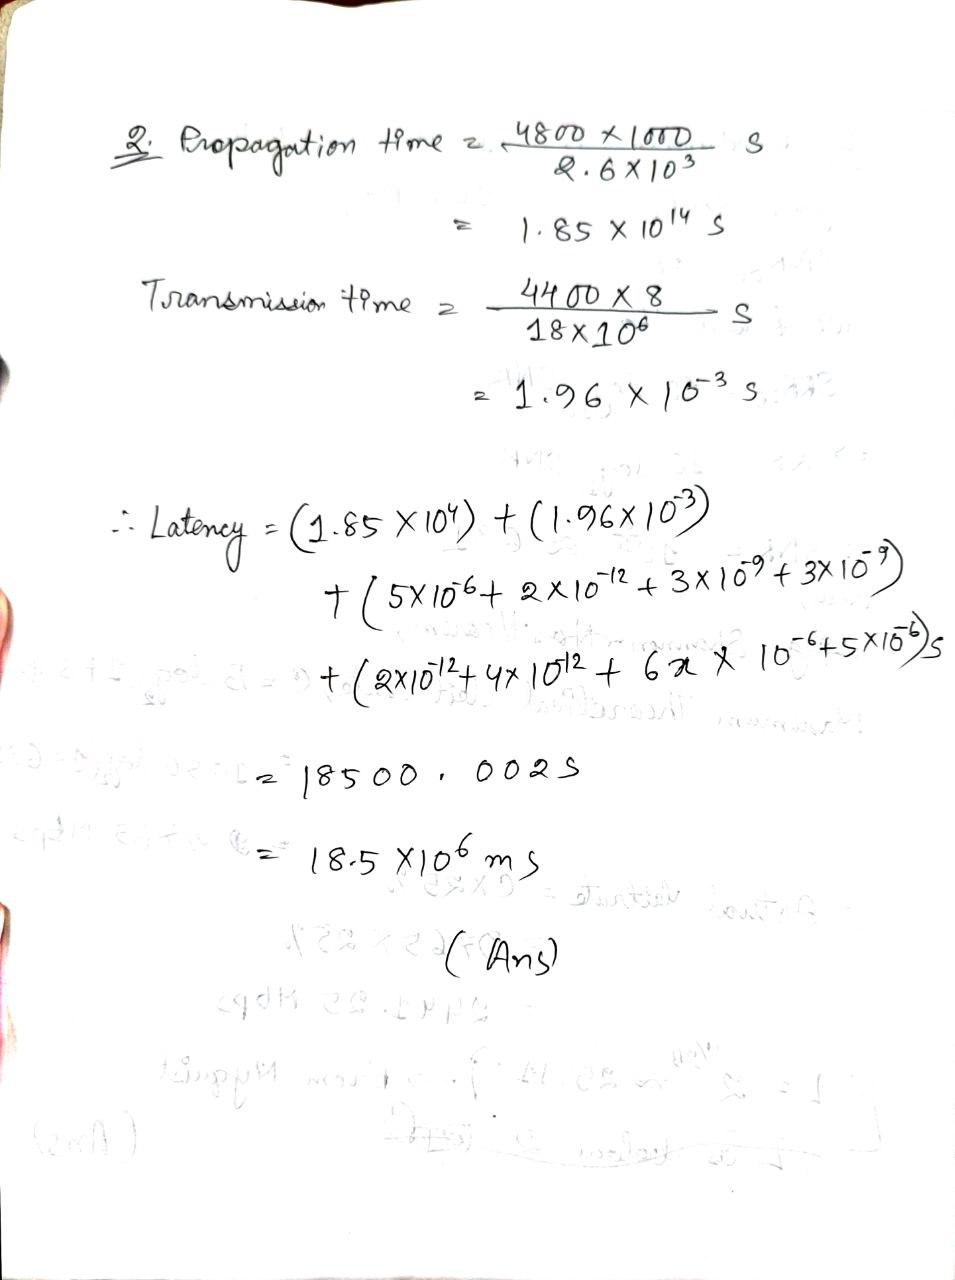 2. Propagation time = 4800 × 1000 / 2.6 × 10³ s
= 1.85 × 10¹⁴ s
Transmission time = 4400 × 8 / 18 × 10⁶ s
= 1.96 × 10⁻³ s
∴ Latency = (1.85 × 10⁴) + (1.96 × 10⁻³)
+ (5×10⁻⁶ + 2×10⁻¹² + 3×10⁻⁹ + 3×10⁻⁹)
+ (2×10⁻¹² + 4×10¹² + 6 × 10⁻⁶ + 5×10⁻⁶) s
= 18500.002 s
= 18.5 × 10⁶ ms
(Ans)